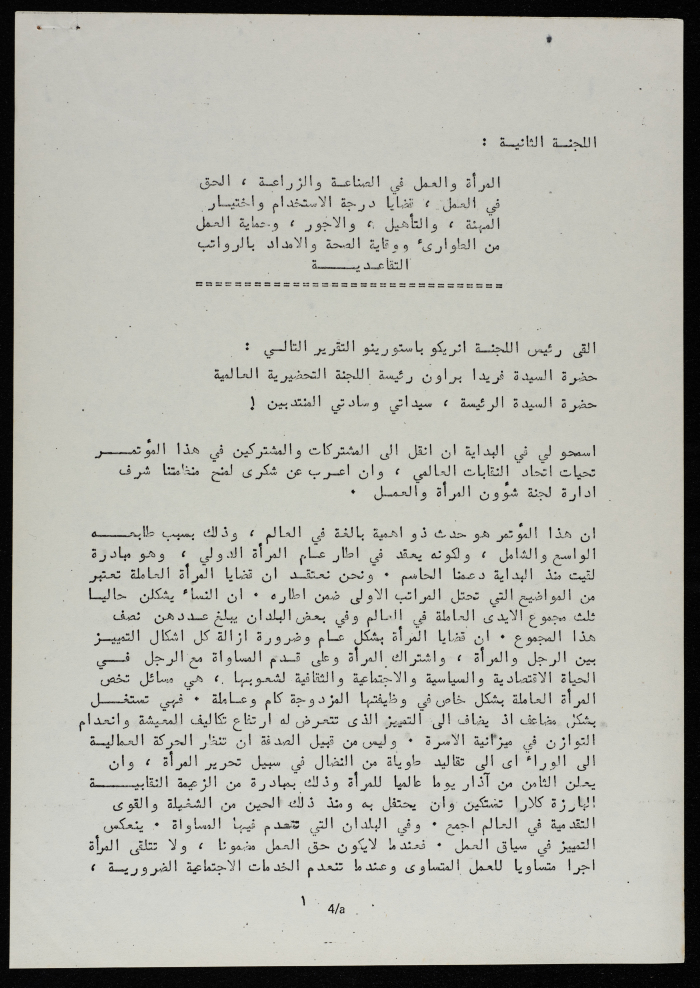 اللجنــة الثانيــة :
المرأة والعمل في الصناعة والزراعة ، الحق
في العمل ، قضايا درجة الاستخدام واختيــار
المهنة ، والتأهيل ، والاجور ، وحماية العمل
من الطوارىء ووقاية الصحة والامداد بالرواتب
التقاعديــــــة
================================
القى رئيس اللجنــة انريكو باستورينو التقرير التالــي :
حضرة السيدة فريدا براون رئيسة اللجنة التحضيرية العالمية
حضرة السيدة الرئيسة ، سيداتي وسادتي المنتدبين !
اسمحو لي في البداية ان انقل الى المشتركات والمشتركين في هذا المؤتمــــر
تحيات اتحاد النقابات العالمي ، وان اعـرب عن شكرى لمنح منظمتنا شرف
ادارة لجنة شؤون المرأة والعمــل ٠
ان هذا المؤتمر هو حدث ذو اهمية بالغة في العالم ، وذلك بسبب طابعـــــه
الواسع والشامل ، ولكونه يعقد في اطار عـام المرأة الدولي ، وهو مبادرة
لقيت منذ البداية دعمنا الحاسم ٠ ونحن نعتقــد ان قضايا المرأة العاملة تعتبر
من المواضيع التي تحتل المراتب الاولى ضمن اطاره ٠ ان النساء يشكلن حاليــا
ثلث مجموع الايدى العاملة في العالم وفي بعض البلدان يبلغ عـددهن نصف
هذا المجموع ٠ ان قضايا المرأة بشكل عـام وضرورة ازالة كل اشكال التمييــز
بين الرجل والمرأة ، واشتراك المرأة وعلى قـدم المساواة مع الرجل فـــي
الحياة الاقتصادية والسياسية والاجتماعية والثقافية لشعوبهـا ، هي مسائل تخص
المرأة العاملة بشكل خاص في وظيفتها المزدوجة كام وعـاملة ٠ فهي تستغــل
بشكل مضاعف اذ يضاف الى التمييز الذى تتعرض له ارتفاع تكاليف المعيشة وانعدام
التوازن في ميزانية الاسرة ٠ وليس من قبيل الصدفة ان تنظر الحركة العماليــة
الى الوراء اى الى تقاليد طويلة من النضال في سبيل تحرير المرأة ، وان
يعلن الثامن من آذار يوما عالميا للمرأة وذلك بمبادرة من الزعيمة النقابيـــــة
البارزة كلارا تستكين وان يحتفل به ومنذ ذلك الحين من الشغيلة والقوى
التقدمية في العالم اجمع ٠ وفي البلدان التي تنعدم فيها المساواة ٠ ينعكس
التمييز في سياق العمل ٠ فعندما لايكون حق العمل مضمونا ، ولا تتلقى المرأة
اجرا متساويا للعمل المتساوى وعندما تنعدم الخدمات الاجتماعية الضروريــة ،
١
4/a